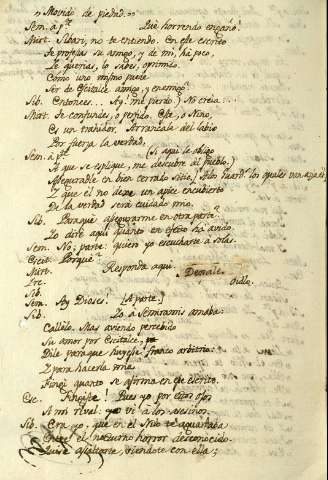 "Movido de piedad.
Sem. à p.te Què horrendo engaño!
Mirt. Sibari, no te entiendo. En esse escrito
Te profesas su amigo, y de mi, ha poco,
Te querias, lo sabes, oprimido.
Como uno mismo puede
Ser de Escitalce amigo, y enemigo?
Sib. Entonces... Ay! me pierdo.) No creìa...
Mirt. Te confundes, o perfido. Este, o Nino,
Es un traidor. Arrancale del labio
Por fuerza la verdad,
Sem. à p.te (Si aqui le obligo
A que se explique, me descubre al pueblo.)
Aseguradle en bien cerrado sitio,
I que èl no dexe un apice encubierto
De la verdad serà cuidado mio.
Sib. Porquè asegurarme en otra parte?
Lo dirè aquì quanto en esto ha avido.
Sem. No; parte: quiero yo escucharte a solas.
Cscit. Porquè?
Mirt. Responda aquì.
Ire. Demale
Sib. Oidlo.
Sem. Ay Dioses. [A parte.]
Sib. Yo à Semiramis amaba:
Callèlo. Mas aviendo percebido
Su amor por Escitalce,
Dile para que huyesse franco arbitrio:
I para hacerla mia
Fingì quanto se afirma en ese escrito.
Esc. Fingiste! Pues yo por estos ojos
Sì mi rival: yo vi à los asesinos.
Sib. Era yo, que en el Nilo te aguardaba
Entre el nocturno horror desconocido.
Quise asaltarte, viendote con ella;